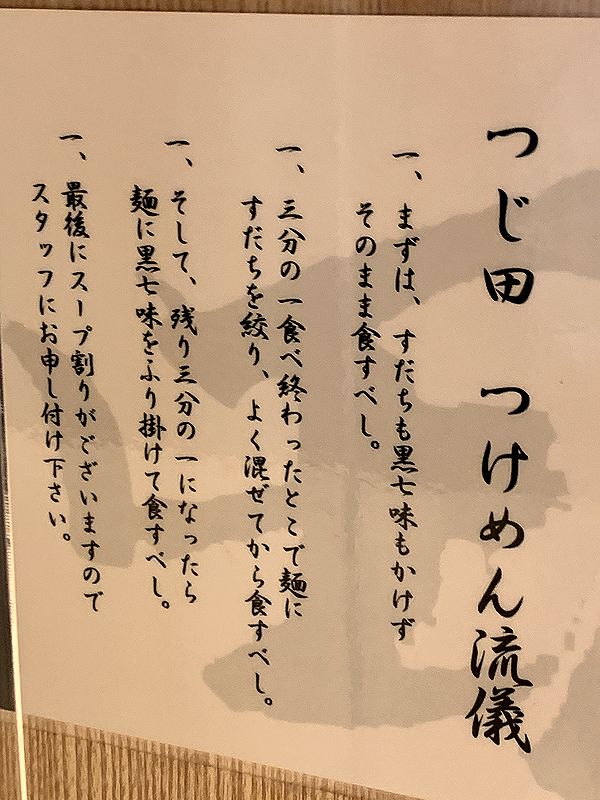 つじ田 つけめん流儀
一、まずは、すだちも黒七味もかけず
そのまま食すべし。
一、三分の一食べ終わったとこで麺に
すだちを絞り、よく混ぜてから食すべし。
一、そして、残り三分の一になったら
麺に黒七味をふり掛けて食すべし。
一、最後にスープ割りがございますので
スタッフにお申し付け下さい。